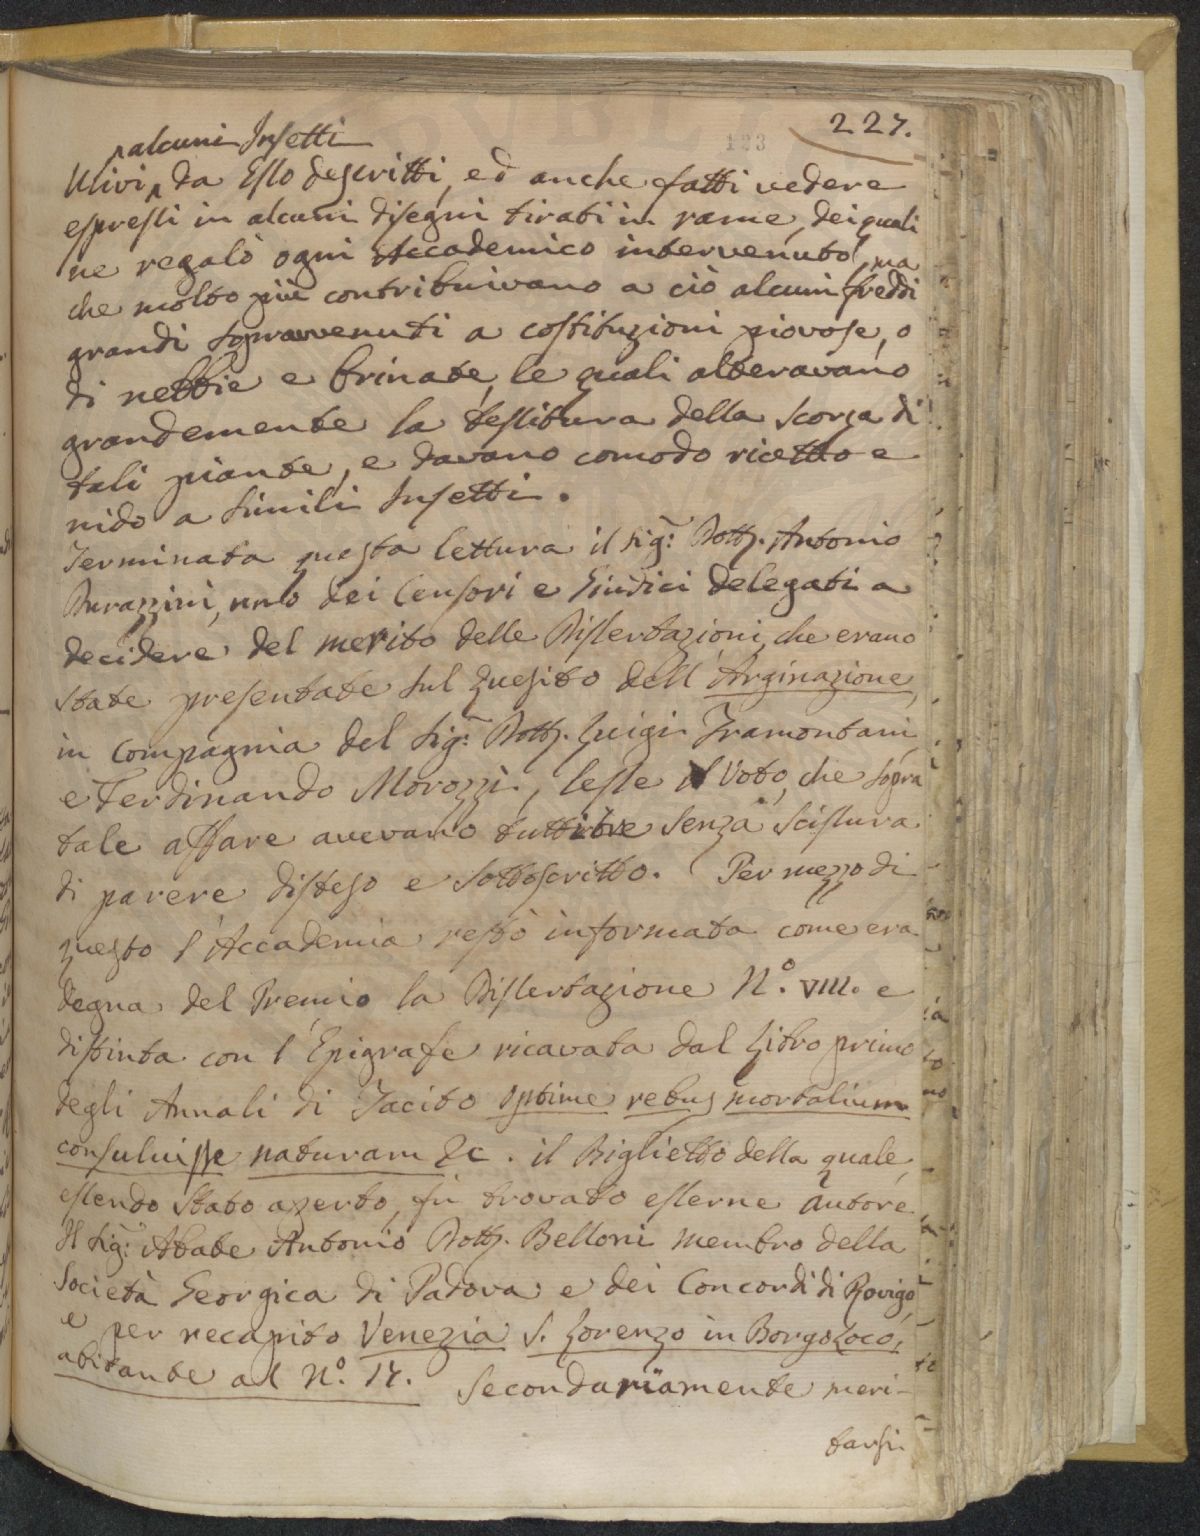 227.
123
alcuni Insetti
Ulivi, da Esso descritti, ed anche fatti vedere
espressi in alcuni disegni tirati in rame, dei quali
ne regalò ogni Accademico intervenuto, ma
che molto più contribuivano a ciò alcuni freddi
grandi sopravvenuti a costituzioni piovose, o
di nebbie e brinate, le quali alteravano
grandemente la tessitura della scorza di
tali piante, e davano comodo ricetto e
nido a simili Insetti.
Terminata questa lettura il Sig.r Dott.r Antonio
Durazzini, uno dei Censori e Giudici delegati a
decidere del merito delle Dissertazioni, che erano
state presentate sul Quesito dell'Arginazione,
in compagnia del Sig.r Dott.r Luigi Tramontani,
e Ferdinando Morozzi, lesse il Voto, che sopra
tale affare avevano tutti tre senza scissura
di parere disteso e sottoscritto. Per mezzo di
questo l'Accademia restò informata come era
degna del Premio la Dissertazione N.o VIII. e
distinta con l'Epigrafe ricavata dal Libro primo
degli Annali di Tacito optime rebus mortalium
consuluisse naturam &c. il Biglietto della quale,
essendo stato aperto, fù trovato esserne autore
Il Sig.r Abate Antonio Dott.r Belloni membro della
Società Georgica di Padova e dei Concordi di Rovigo,
e per recapito Venezia S. Lorenzo in Borgoloco,
abitante al N.o 17. Secondariamente meri-
tarsi